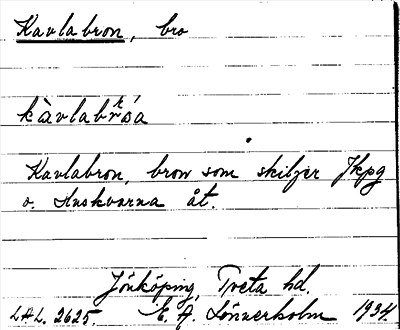 Kavlabron, bro
kàvlabrśa
Kavlabron, bron som skiljer Jkpg
o. Huskvarna åt.
Jönköping, Tveta hd.
LAL. 2625. E. A. Lönnerholm 1934.